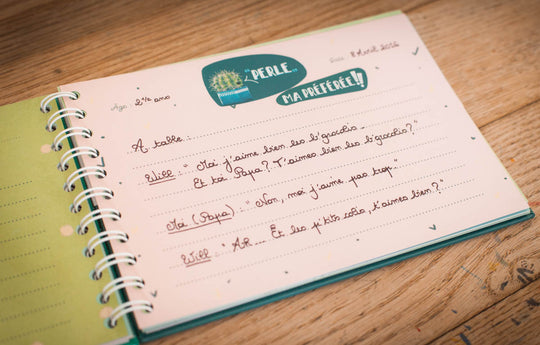 PERLE...
Age : 2 1/2 ans
Date : 8 Avril 2016
MA PRÉFÉRÉE !!
A table :
Will : " Moi j'aime bien les b'grocolis.
Et toi Papa ? T'aimes bien les b'grocolis ?"
Moi (Papa) : " Non, moi j'aime pas trop"
Will : " Ah.... Et les p'tits colis, t'aimes bien ?"